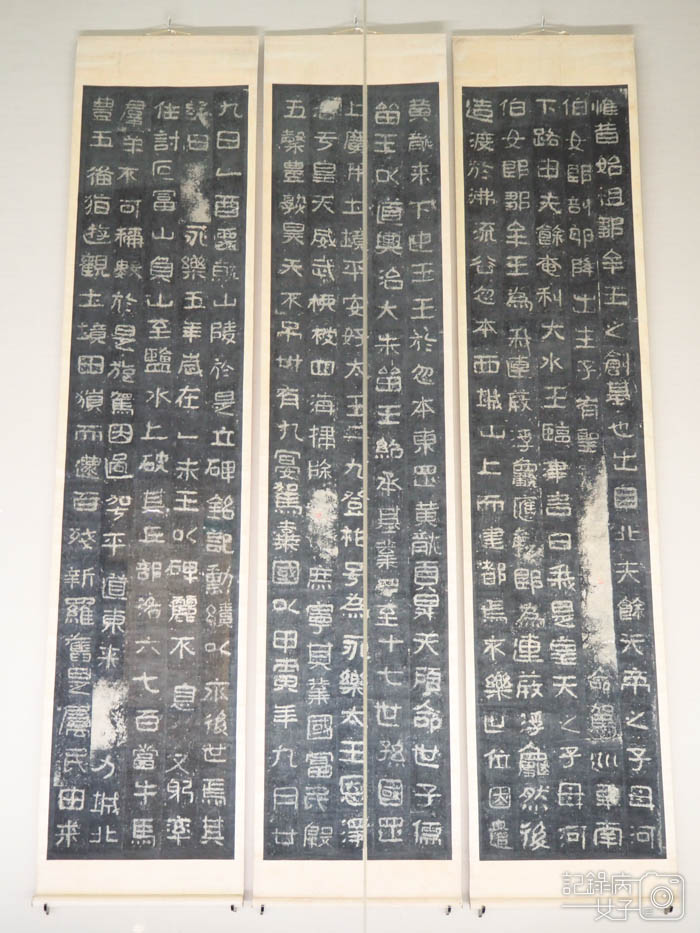 惟昔始祖鄒牟王之創基也出自北夫餘天帝之子母河
伯女郎剖卵降出生子有聖 命駕巡車南
下路由夫餘奄利大水王臨津言曰我是皇天之子母河
伯女郎鄒牟王為我連葭浮龜應聲即為連葭浮龜然後
造渡於沸流谷忽本西城山上而建都焉永樂世位因遣
黃龍來下迎王王於忽本東罡黃龍負昇天顧命世子儒
留王以道興治大朱留王紹承基業遝至十七世孫國罡
上廣開土境平安好太王二九登祚号為永樂太王恩澤
洽于皇天威武振被四海掃除 庶寧其業國富民殷
五穀豊熟昊天不弔卅有九宴駕棄國以甲寅年九月廿
九日乙酉遷就山陵於是立碑銘記勳績以永後世焉其
辞曰 永樂五年歲在乙未王以碑麗不息 又躬率
住討叵富山負山至鹽水上破其丘部洛六七百當牛馬
羣羊不可稱數於是旋駕因過 平道東來 力城北
豊五備猶遊觀土境田獵而還百殘新羅舊是屬民由來
記錄病
女子